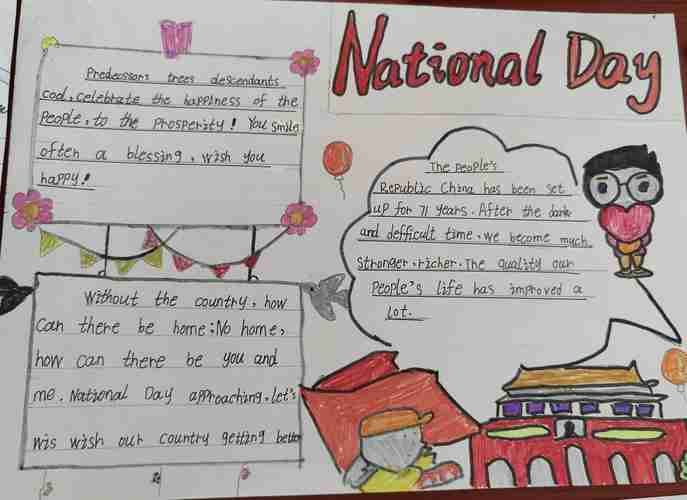 National Day
Predecssors trees descendants
cool, celebrate the happiness of the
People, to the Prosperity! You smile
often a blessing, wish you
happy!
Without the country, how
can there be home; No home,
how can there be you and
me. National Day approaching, let's
wis wish our country getting better
The people's
Republic China has been set
up for 71 years. After the dark
and defficult time, we become much
stronger, richer. The quality our
people's life has improved a
lot.